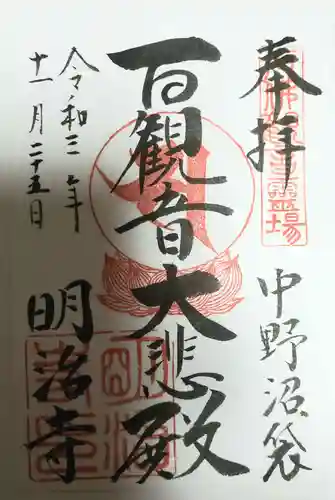 奉拝
中野沼袋
百観音大悲殿
令和三年
十一月二十五日
明治寺